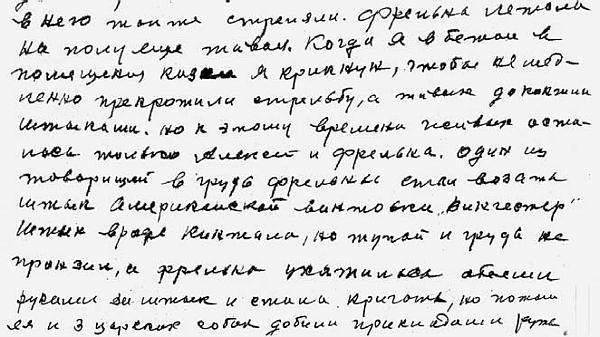 в него также стреляли. Фрельна лежала
на полу еще живая. Когда я вбежал в
помещения казни я крикнул, чтобы немед-
ленно прекратили стрельбу, а живых доканчили
штыками. но к этому времени в живых оста-
лось только Алексей и фрельна. один из
товарищей в грудь фрельны стал вонзать
штык Американской винтовки „Винчестер"
Штык вроде кинжала, но тупой и грудь не
пронзил, а фрельна ухатилась обоими
руками за штык и стала кричать, но потом
ее и 3 царских собак добили прикладами ружа